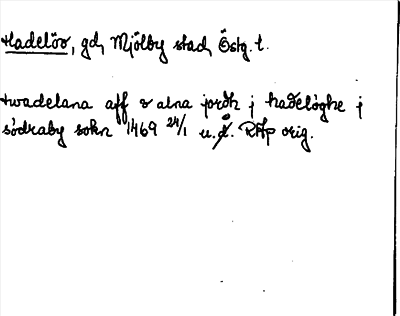 Hadelöv, gd, Mjölby stad, Östg. l.
twadelana aff 8 alna jordh j hadeløghe j
sødraby sokn 1469 24/1 u.d. RAp orig.